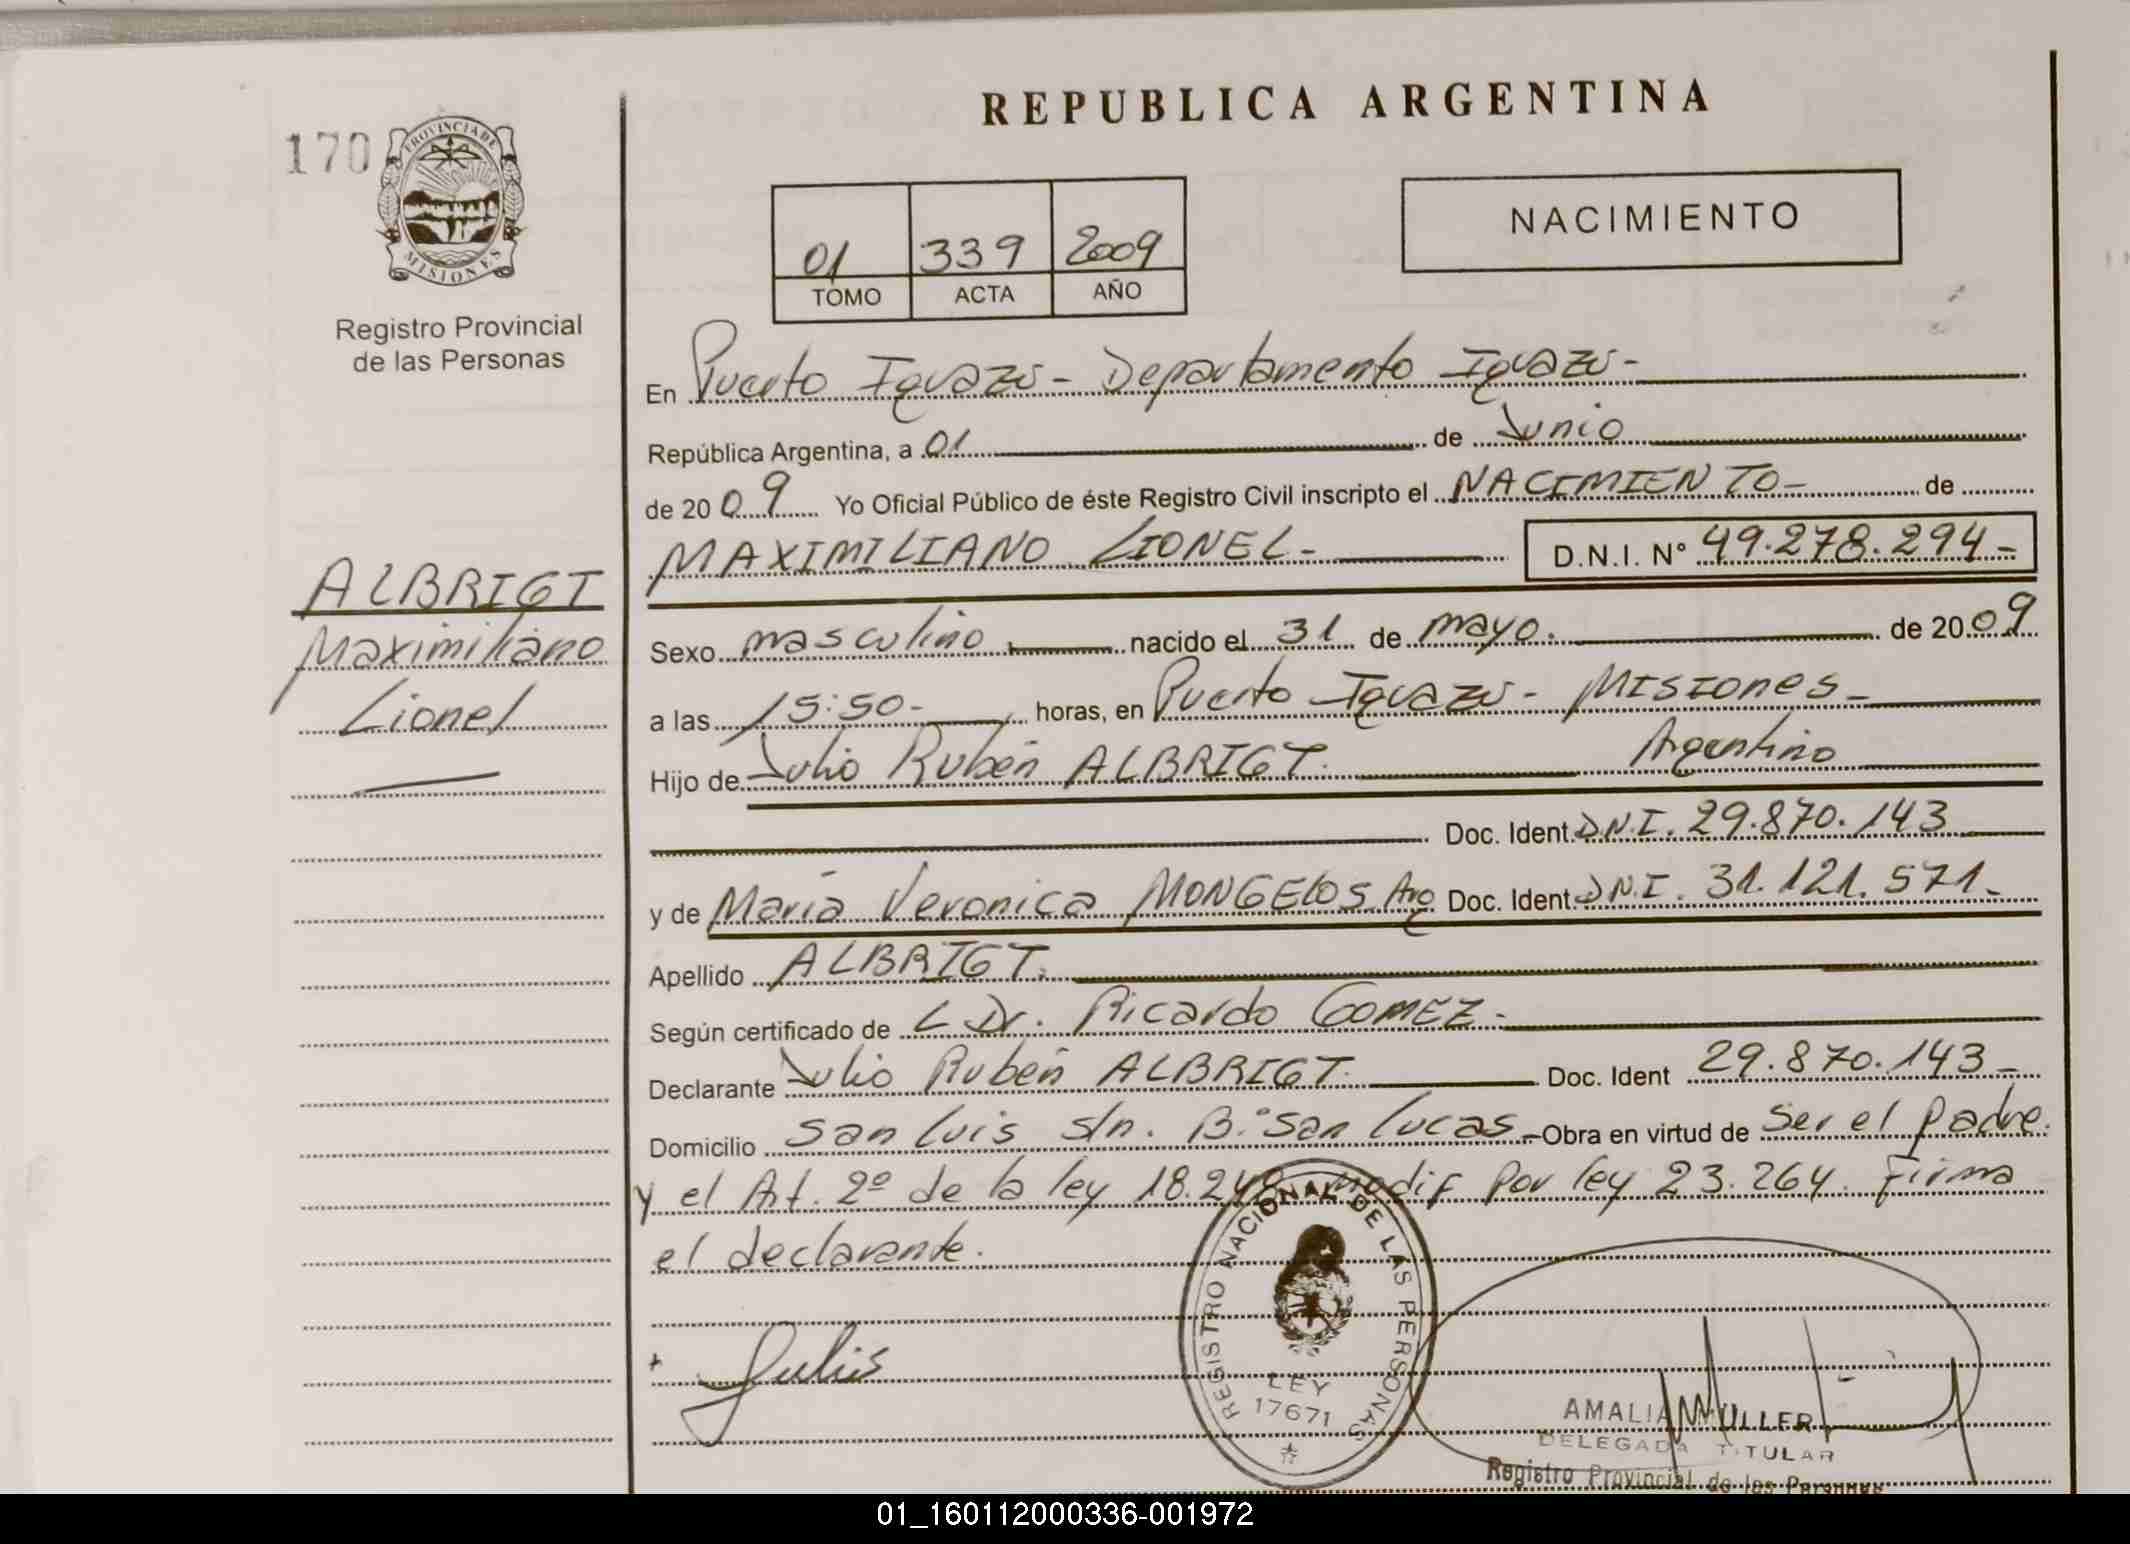 REPUBLICA ARGENTINA
170
PROVINCIA DE
MISIONES
Registro Provincial
de las Personas
01 339 2009
TOMO ACTA AÑO
NACIMIENTO
En Puerto Iguazú - Departamento Iguazú -
República Argentina, a 01 de Junio
de 2009 Yo Oficial Público de éste Registro Civil inscripto el NACIMIENTO - de
MAXIMILIANO LIONEL - D.N.I. N° 49.278.294 -
ALBRIGT
Maximiliano
Lionel
Sexo masculino nacido el 31 de mayo. de 2009
a las 15:50 - horas, en Puerto Iguazú - Misiones -
Hijo de Julio Rubén ALBRIGT. Argentino
Doc. Ident. D.N.I. 29.870.143
y de María Veronica MONGELOS Arg Doc. Ident. D.N.I. 31.121.571 -
Apellido ALBRIGT.
Según certificado de Dr. Ricardo GOMEZ -
Declarante Julio Rubén ALBRIGT. Doc. Ident 29.870.143 -
Domicilio San Luis s/n. B° San Lucas - Obra en virtud de Ser el padre.
y el Art. 2º de la ley 18.248 modif por ley 23.264. Firma
el declarante.
REGISTRO NACIONAL DE LAS PERSONAS
LEY
17671
Julio
AMALIA MULLER
DELEGADA TITULAR
Registro Provincial de las Personas
01_160112000336-001972